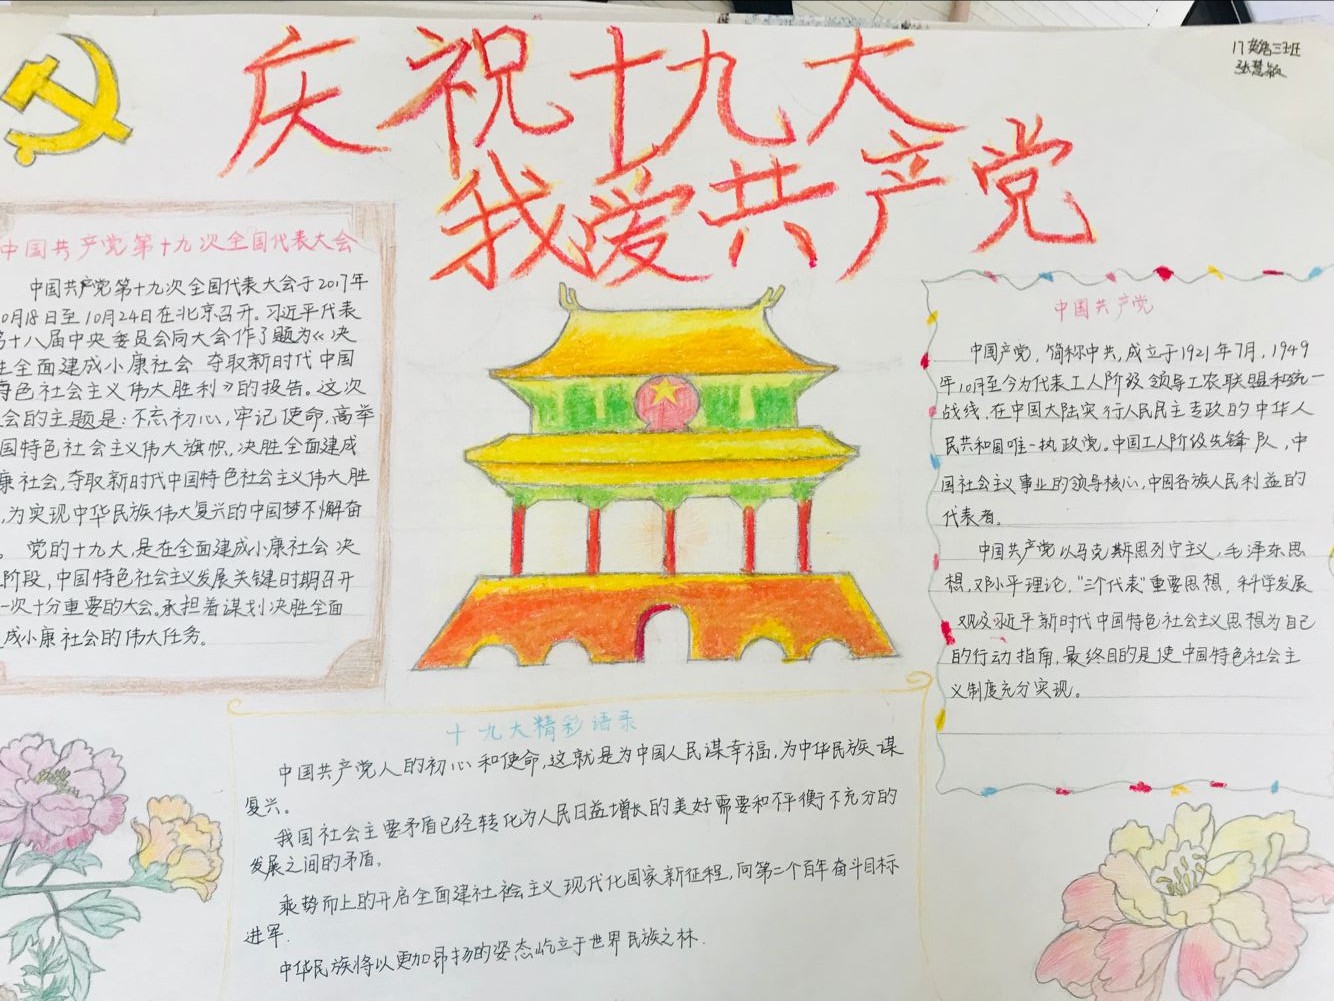 庆祝十九大
我爱共产党
17英语三班
中国共产党第十九次全国代表大会
中国共产党第十九次全国代表大会于2017年
10月18日至10月24日在北京召开。习近平代表
第十八届中央委员会向大会作了题为《决
胜全面建成小康社会 夺取新时代中国
特色社会主义伟大胜利》的报告。这次
会的主题是：不忘初心，牢记使命，高举
国特色社会主义伟大旗帜，决胜全面建成
康社会，夺取新时代中国特色社会主义伟大胜
，为实现中华民族伟大复兴的中国梦不懈奋
。党的十九大，是在全面建成小康社会决
阶段，中国特色社会主义发展关键时期召开
一次十分重要的大会，承担着谋划决胜全面
成小康社会的伟大任务。
中国共产党
中国产党，简称中共，成立于1921年7月，1949
年10月至今为代表工人阶级领导工农联盟和统一
战线，在中国大陆实行人民民主专政的中华人
民共和国唯一执政党。中国工人阶级先锋队，中
国社会主义事业的领导核心，中国各族人民利益的
代表者。
中国共产党以马克斯思列宁主义，毛泽东思
想，邓小平理论，"三个代表"重要思想，科学发展
观及习近平新时代中国特色社会主义思想为自己
的行动指南，最终目的是使中国特色社会主
义制度充分实现。
十九大精彩语录
中国共产党人的初心和使命，这就是为中国人民谋幸福，为中华民族谋
复兴。
我国社会主要矛盾已经转化为人民日益增长的美好需要和不平衡不充分的
发展之间的矛盾。
乘势而上的开启全面建社会主义现代化国家新征程，向第二个百年奋斗目标
进军.
中华民族将以更加昂扬的姿态屹立于世界民族之林.